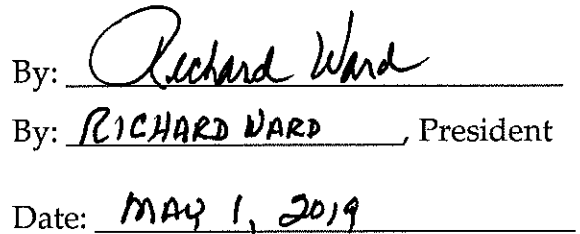 By: Richard Ward
By: RICHARD WARD, President
Date: MAY 1, 2019